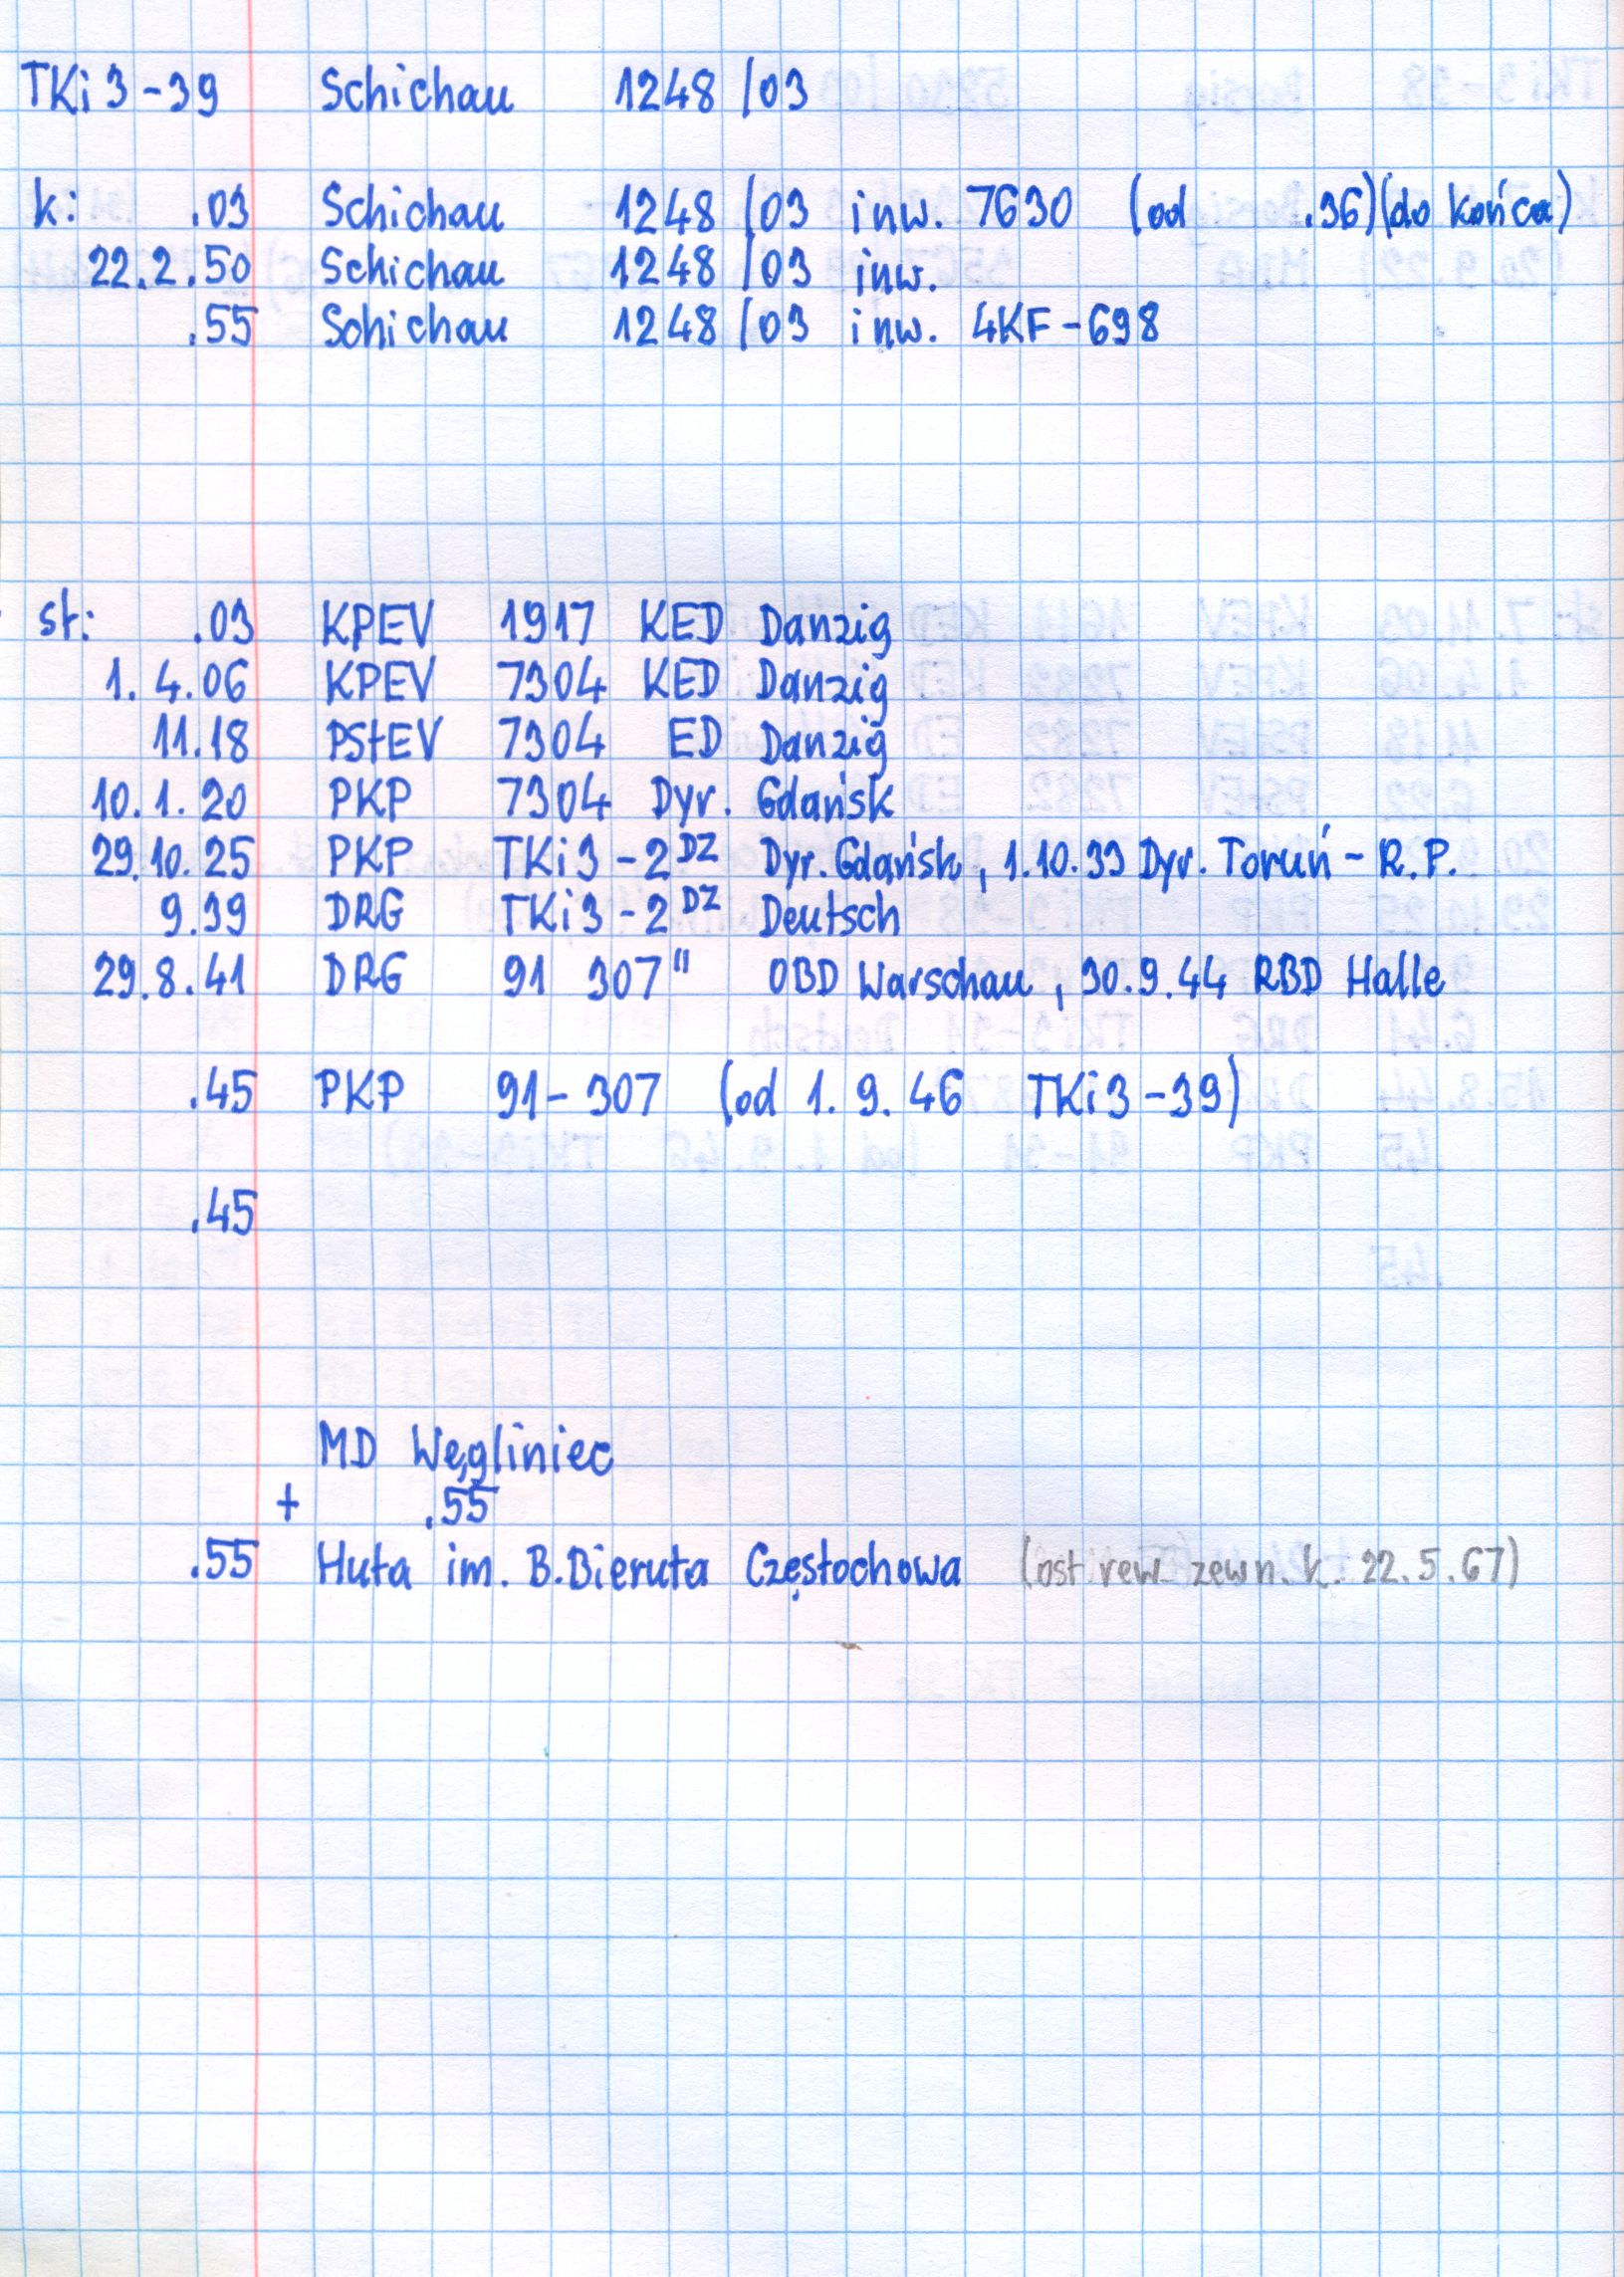 TKi3-39 Schichau 1248/03
k: .03 Schichau 1248/03 inw. 7630 (od .36)(do końca)
22.2.50 Schichau 1248/03 inw.
.55 Schichau 1248/03 inw. 4KF-698
st: .03 KPEV 1917 KED Danzig
1.4.06 KPEV 7304 KED Danzig
11.18 PStEV 7304 ED Danzig
10.1.20 PKP 7304 Dyr. Gdańsk
29.10.25 PKP TKi3-2 DZ Dyr. Gdańsk, 1.10.33 Dyr. Toruń - R.P.
9.39 DRG TKi3-2 DZ Deutsch
29.8.41 DRG 91 307" OBD Warschau, 30.9.44 RBD Halle
.45 PKP 91-307 (od 1.9.46 TKi3-39)
.45
MD Węgliniec
+ .55
.55 Huta im. B.Bieruta Częstochowa (ost rew. zewn. k. 22.5.67)